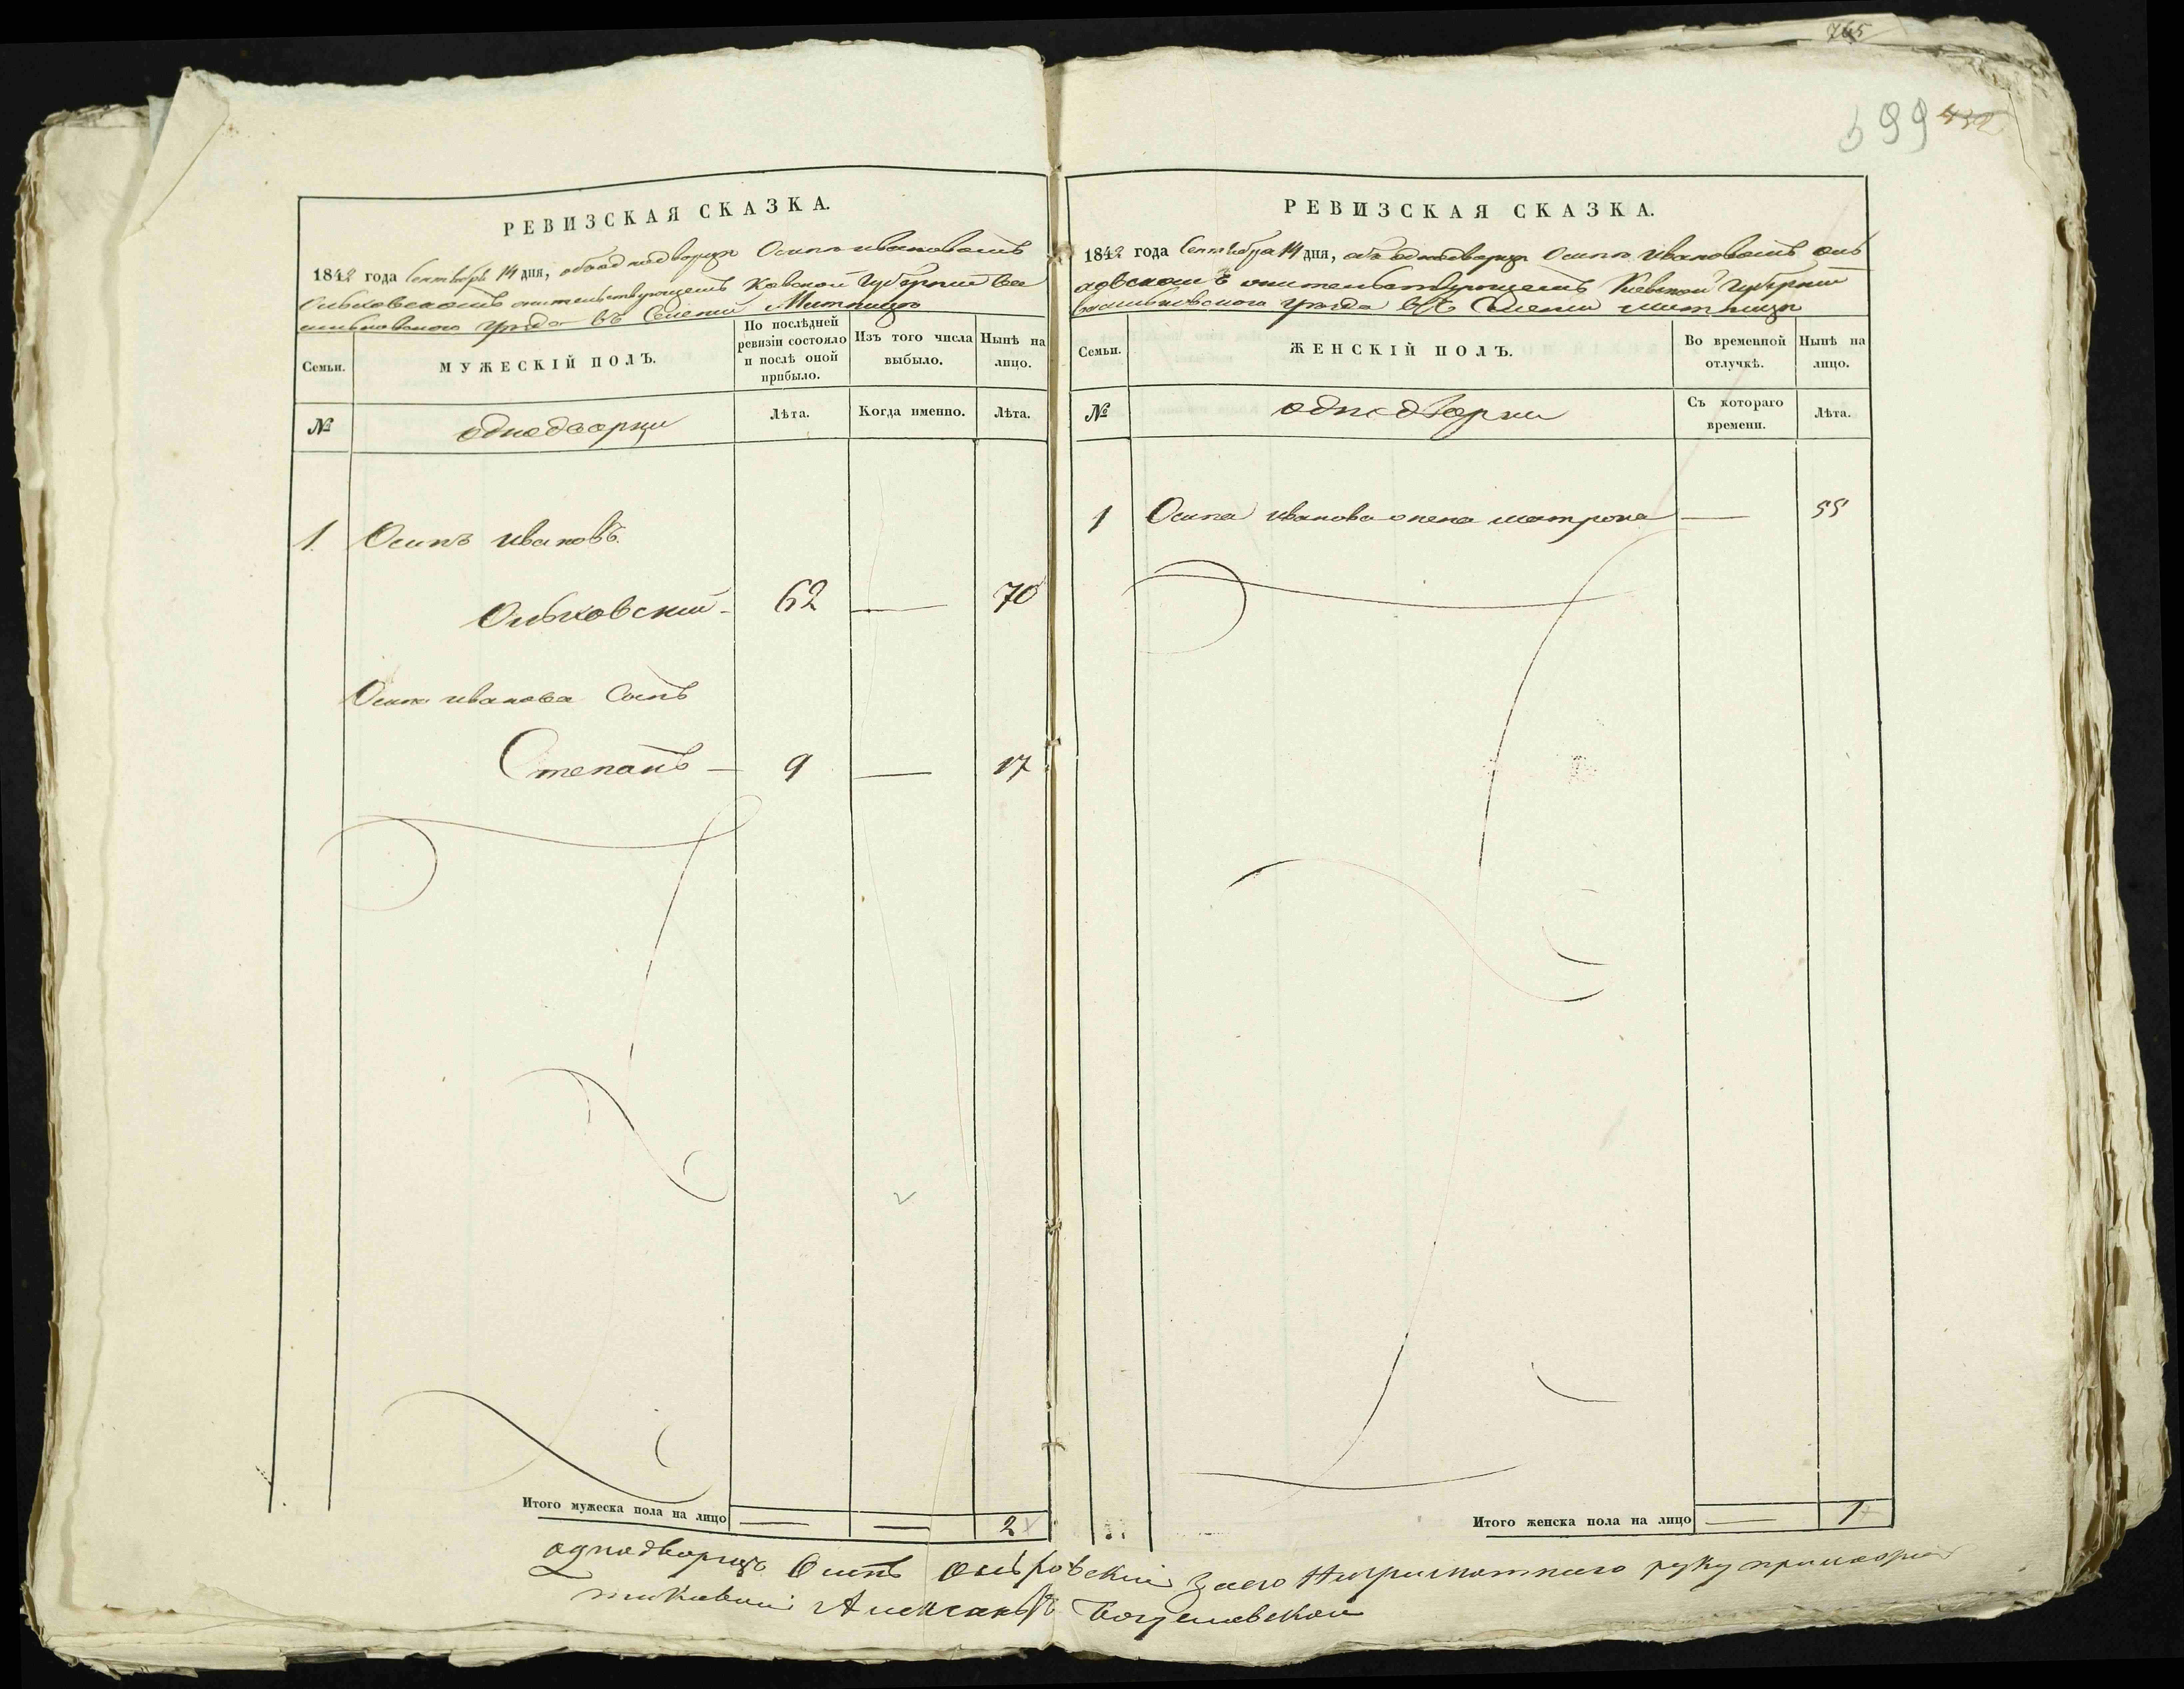 765
699 432
РЕВИЗСКАЯ СКАЗКА.
1842 года Сентября 14 дня, объ однодворце Осипе Ивановомъ
Ольковскомъ жительствующемъ Кевской Губерний Ва
сильковского уезда въ Селении Митнице
Семьи.
МУЖЕСКІЙ ПОЛЪ.
По послѣдней ревизіи состояло и послѣ оной прибыло.
Изъ того числа выбыло.
Нынѣ на лицо.
№
однодворци
Лѣта.
Когда именно.
Лѣта.
1. Осипъ Ивановъ
Ольковский - 62 — 70
Осипа Иванова Сынъ
Степанъ — 9 — 17
Итого мужеска пола на лицо — — 2
РЕВИЗСКАЯ СКАЗКА.
1842 года Сентебра 14 дня, объ однодворце Осипе Ивановомъ Оль
ковскомъ жительствующемъ Киевской Губерний
Васильковского уезда въ Селении Митнице
Семьи.
ЖЕНСКІЙ ПОЛЪ.
Во временной отлучкѣ.
Нынѣ на лицо.
№
однодворки
Съ котораго времени.
Лѣта.
1 Осипа Иванова жена Матрона — 55
Итого женска пола на лицо — 1
однодворецъ Осипъ Ольковский заего Неграмотного руку приложил
Александъ